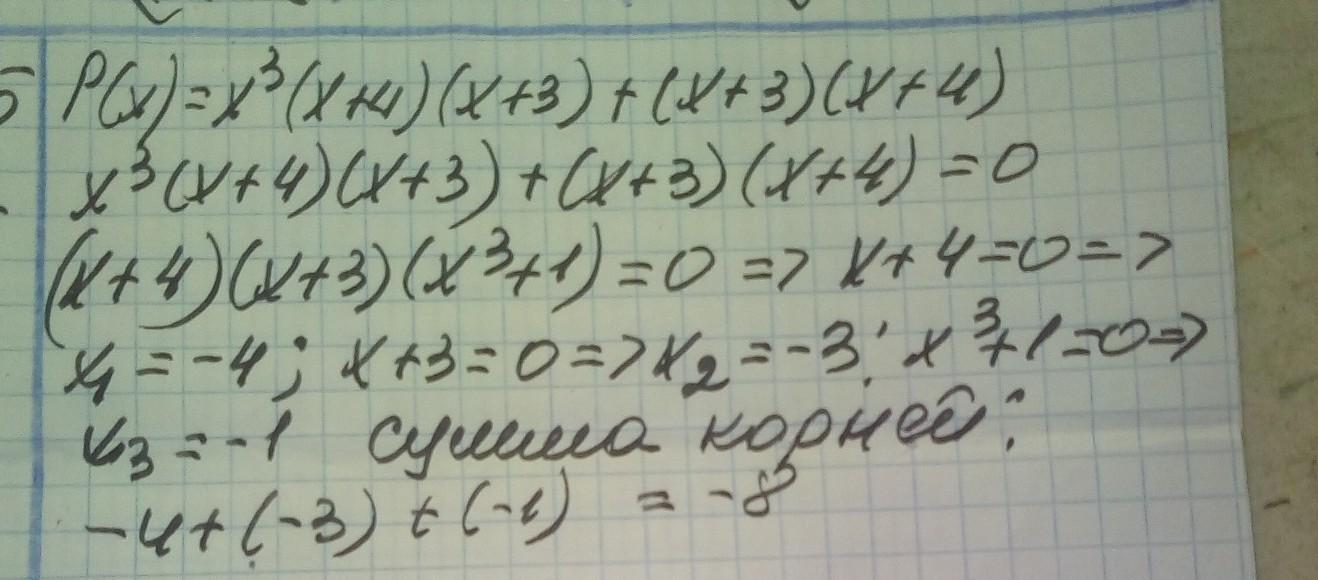 5 P(x)=x³(x+4)(x+3)+(x+3)(x+4)
x³(x+4)(x+3)+(x+3)(x+4)=0
(x+4)(x+3)(x³+1)=0=>x+4=0=>
x₁=-4; x+3=0=>x₂=-3; x³+1=0=>
x₃=-1 сумма корней:
-4+(-3)+(-1) = -8